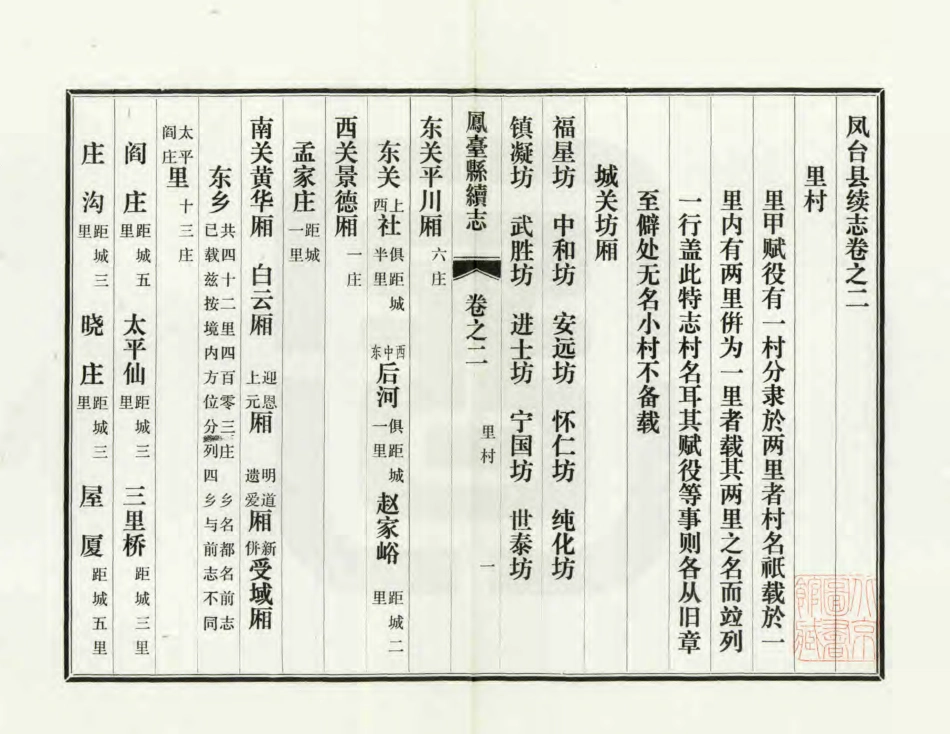 凤台县续志卷之二
里村
里甲赋役有一村分隶於两里者村名祇载於一
里内有两里併为一里者载其两里之名而竝列
一行盖此特志村名耳其赋役等事则各从旧章
至僻处无名小村不备载
城关坊厢
福星坊 中和坊 安远坊 怀仁坊 纯化坊
镇凝坊 武胜坊 进士坊 宁国坊 世泰坊
鳳臺縣續志 卷之二 里村 一
东关平川厢 六庄
东关上西社 俱距城半里 西中东后河 俱距城一里 赵家峪 距城二里
西关景德厢 一庄
孟家庄 距城一里
南关黄华厢 白云厢 迎恩上元厢 明道遗爱厢 新併受域厢
东乡 共四十二里四百零三庄 乡名都名前志已载兹按境内方位分列四乡与前志不同
太平阎庄里 十三庄
阎庄 距城五里 太平仙 距城三里 三里桥 距城三里
庄沟 距城三里 晓庄 距城三里 屋厦 距城五里
北京圖書館藏